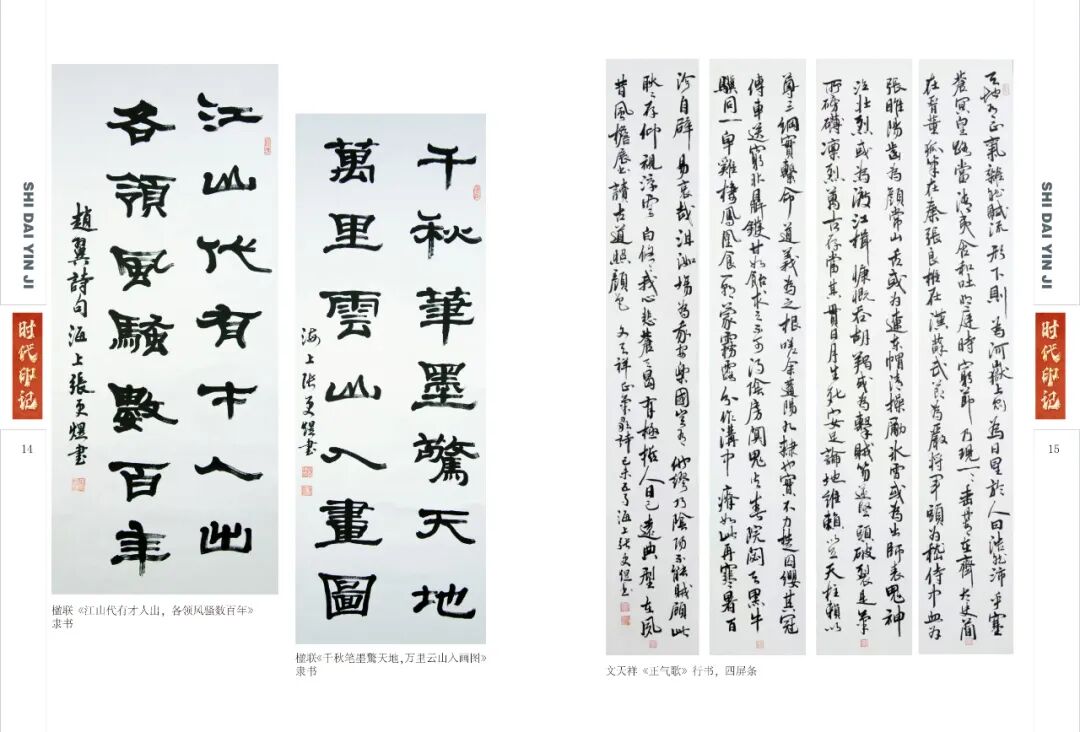 SHI DAI YIN JI
时代印记
14
江山代有才人出
各領風騷數百年
趙翼詩句 海上張
千秋筆墨驚天地
萬里雲山入畫圖
海上張
楹联《江山代有才人出，各领风骚数百年》
隶书
楹联《千秋笔墨驚天地，万里云山入画图》
隶书
天地有正氣雜然賦流形下則為河嶽上則為日星於人曰浩然沛乎塞
蒼冥皇路當清夷含和吐明庭時窮節乃現一一垂丹青在齊太史簡
在晉董狐筆在秦張良椎在漢蘇武節為嚴將軍頭為嵇侍中血為
張睢陽齒為顏常山舌或為遼東帽清操勵冰雪或為出師表鬼神
泣壯烈或為渡江楫慷慨吞胡羯或為擊賊笏逆豎頭破裂是氣
所磅礴凜烈萬古存當其貫日月生死安足論地維賴以立天柱賴以
尊三綱實繫命道義為之根嗟余遘陽九隸也實不力楚囚纓其冠
傳車送窮北鼎鑊甘如飴求之不可得陰房闃鬼火春院閟天黑牛
驥同一皁雞棲鳳凰食一朝蒙霧露分作溝中瘠如此再寒暑百
沴自辟易哀哉沮洳場為我安樂國豈有他繆巧陰陽不能賊顧此
耿耿存仰視浮雲白悠悠我心悲蒼天曷有極哲人日已遠典型在夙
昔風檐展書讀古道照顏色 文天祥正氣歌詩 海上張
文天祥《正气歌》行书，四屏条
SHI DAI YIN JI
时代印记
15